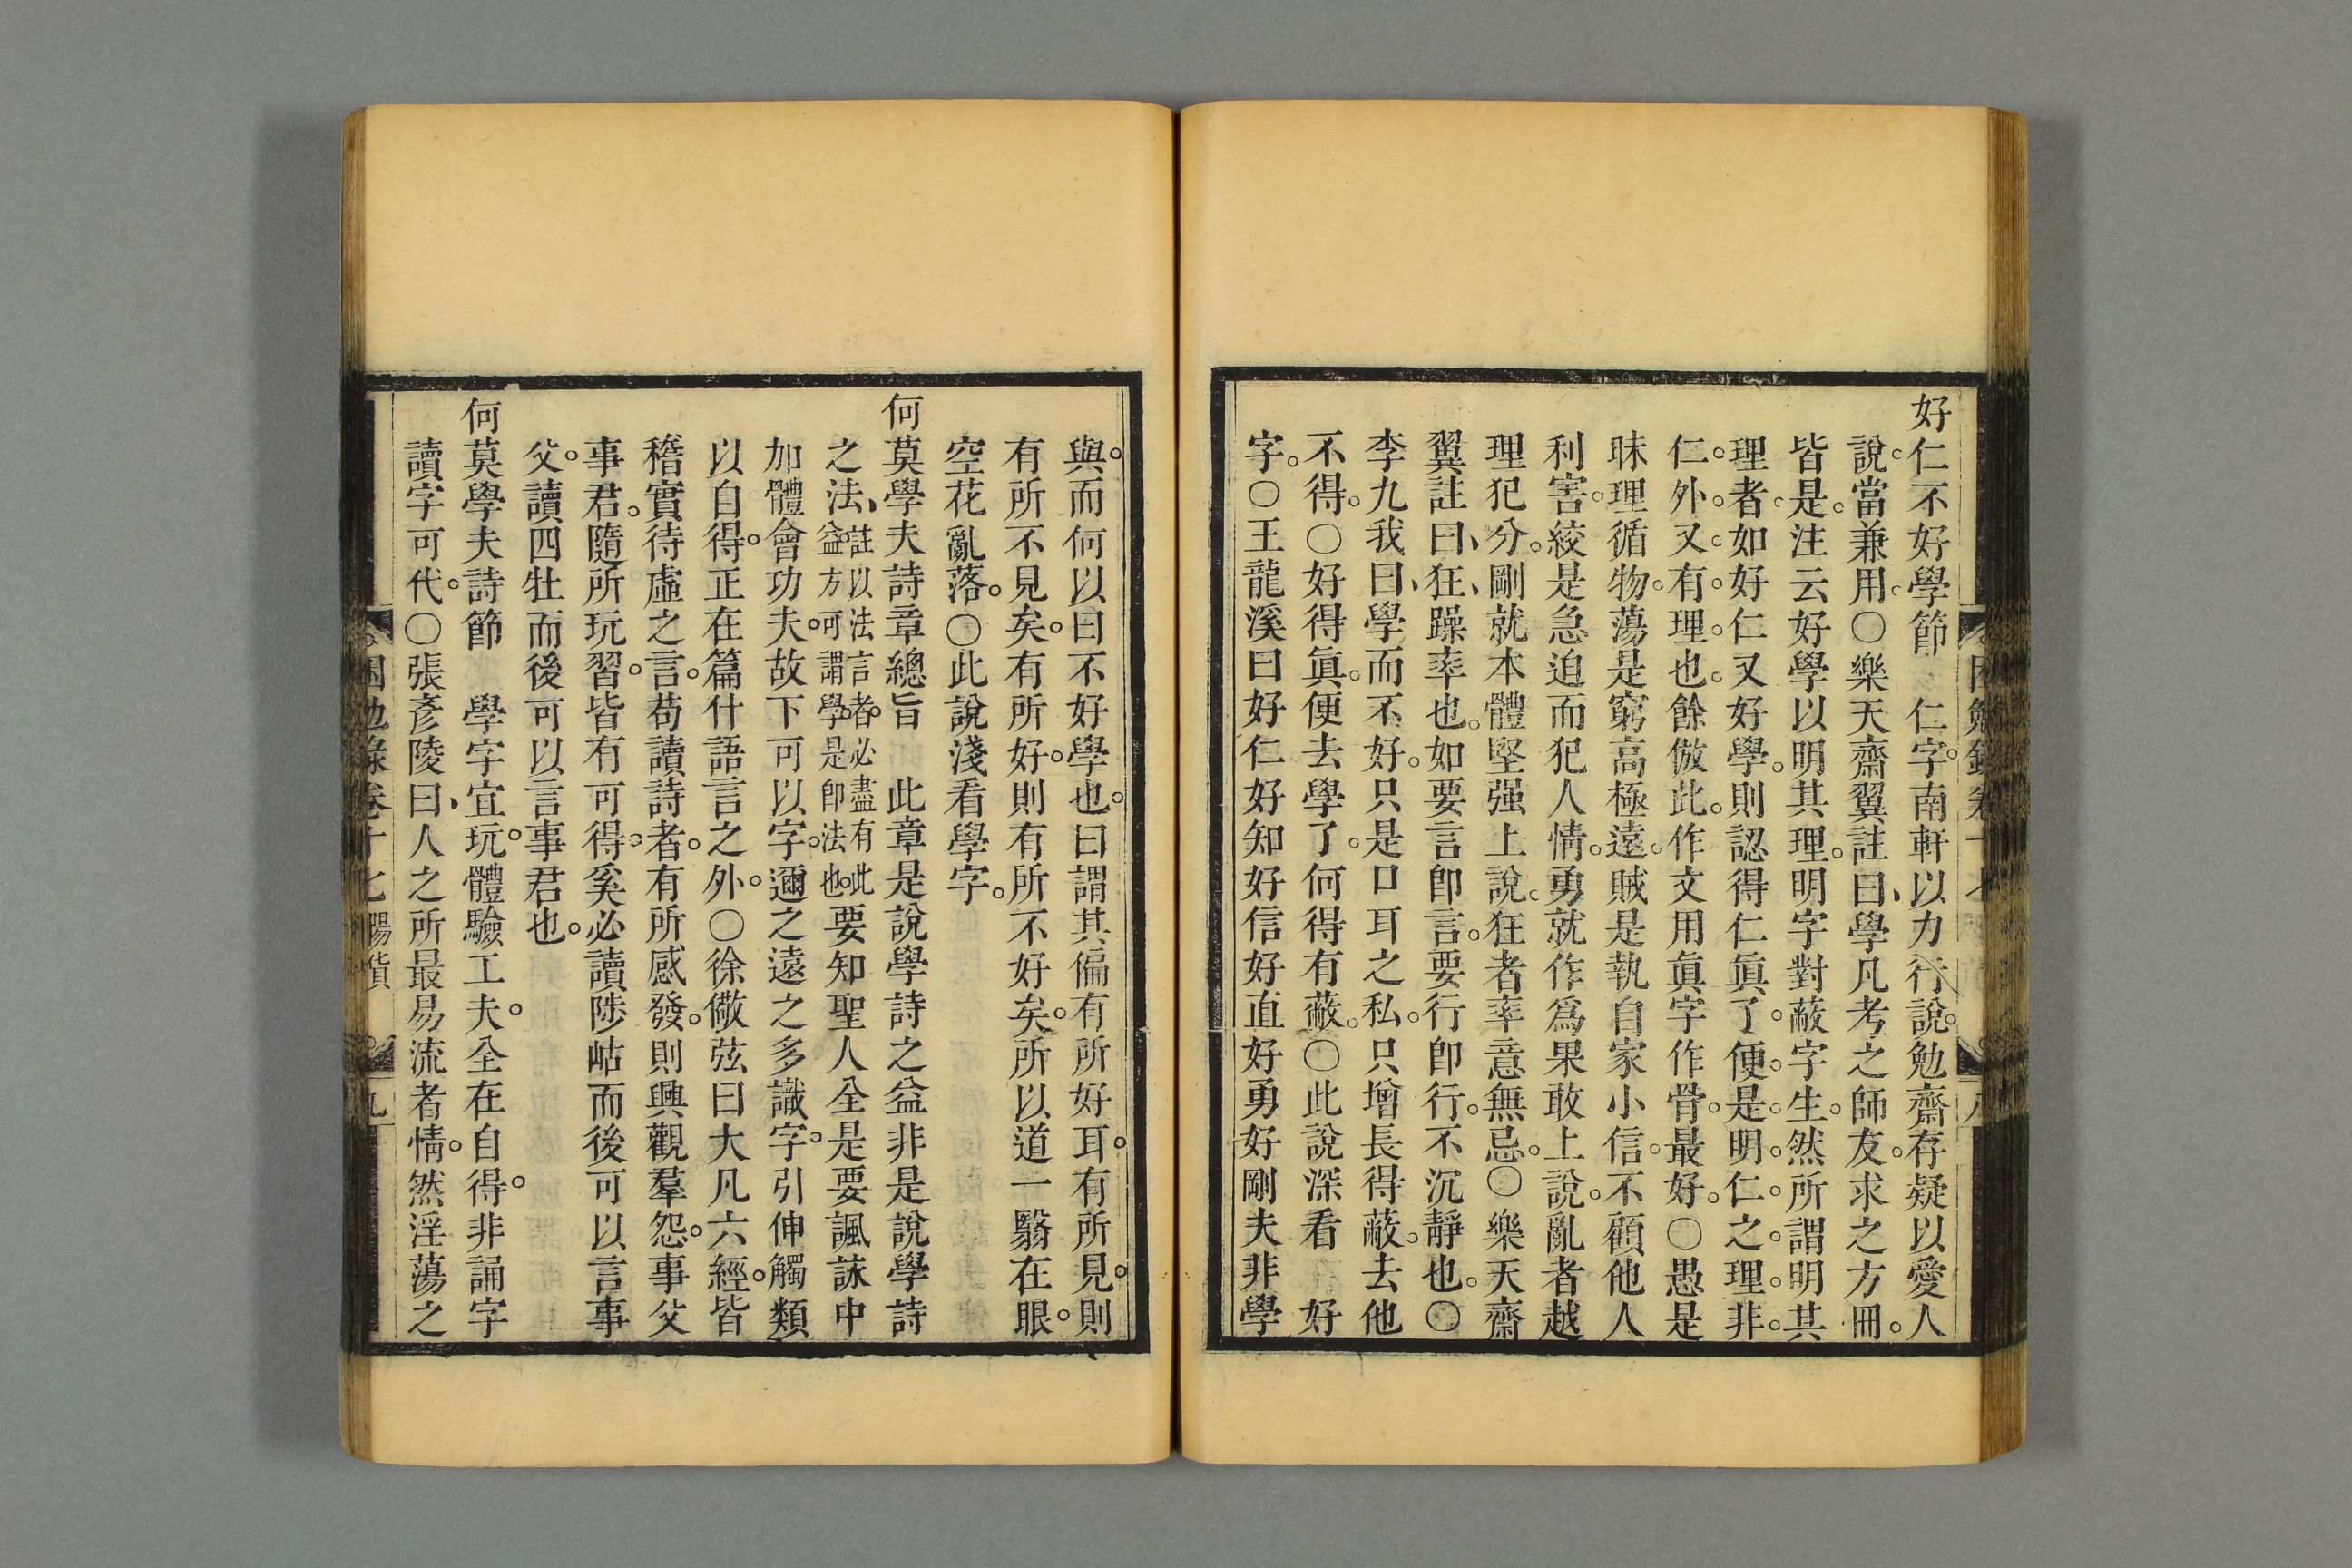 好仁不好學節　仁字。南軒以力行說。勉齋存疑以愛人
說。當兼用。○樂天齋翼註曰、學凡考之師友。求之方冊。
皆是。注云好學以明其理。明字對蔽字生。然所謂明其
理者。如好仁又好學。則認得仁眞了。便。是。明。仁。之。理。非。
仁。外。又。有。理。也。餘倣此。作文用眞字作骨。最好。○愚是
昧理循物。蕩是窮高極遠。賊是執自家小信。不顧他人
利害。絞是急迫而犯人情。勇就作爲果敢上說。亂者越
理犯分。剛就本體堅强上說。狂者率意無忌。○樂天齋
翼註曰、狂、躁率也。如要言卽言。要行卽行。不沉靜也。○
李九我曰、學而不好。只是口耳之私。只增長得蔽。去他
不得。○好得眞。便去學了。何得有蔽。○此說深看　好
字。○王龍溪曰好仁好知好信好直好勇好剛夫非學
與。而何以曰不好學也。曰謂其偏有所好耳。有所見。則
有所不見矣。有所好。則有所不好矣。所以道一翳在眼。
空花亂落。○此說淺看學字。
何莫學夫詩章總旨　此章是說學詩之益非是說學詩
之法、註以法言者。必盡有此益。方可謂學。是卽法也。要知聖人全是要諷詠中
加體會功夫。故下可以字。邇之遠之多識字。引伸觸類
以自得。正在篇什語言之外。○徐儆弦曰大凡六經。皆
稽實待虛之言。苟讀詩者。有所感發。則興觀羣怨。事父
事君。隨所玩習。皆有可得。奚必讀陟岵而後可以言事
父。讀四牡而後可以言事君也。
何莫學夫詩節　學字宜玩。體驗工夫。全在自得。非誦字
讀字可代。○張彥陵曰、人之所最易流者情。然淫蕩之
困勉錄卷十七 陽貨 九